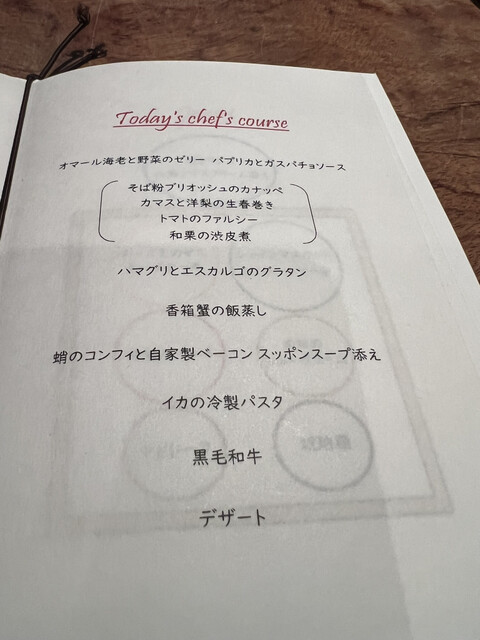 Today's chef's course
オマール海老と野菜のゼリー パプリカとガスパチョソース
そば粉ブリオッシュのカナッペ
カマスと洋梨の生春巻き
トマトのファルシー
和栗の渋皮煮
ハマグリとエスカルゴのグラタン
香箱蟹の飯蒸し
蛸のコンフィと自家製ベーコン スッポンスープ添え
イカの冷製パスタ
黒毛和牛
デザート